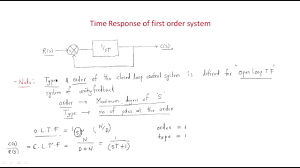 Time Response of first order system
R(s)
1/ST
C(s)
Note: Type & order of the closed loop control system is defined for "open loop T.F"
system of unity feedback
order → Maximum power of 'S'
Type → no of poles at the origin
O.L.T.F = 1/ST (N/D)
order = 1
type = 1
C(s)/R(s) = C.L.T.F = N/(D+N) = 1/(ST+1)